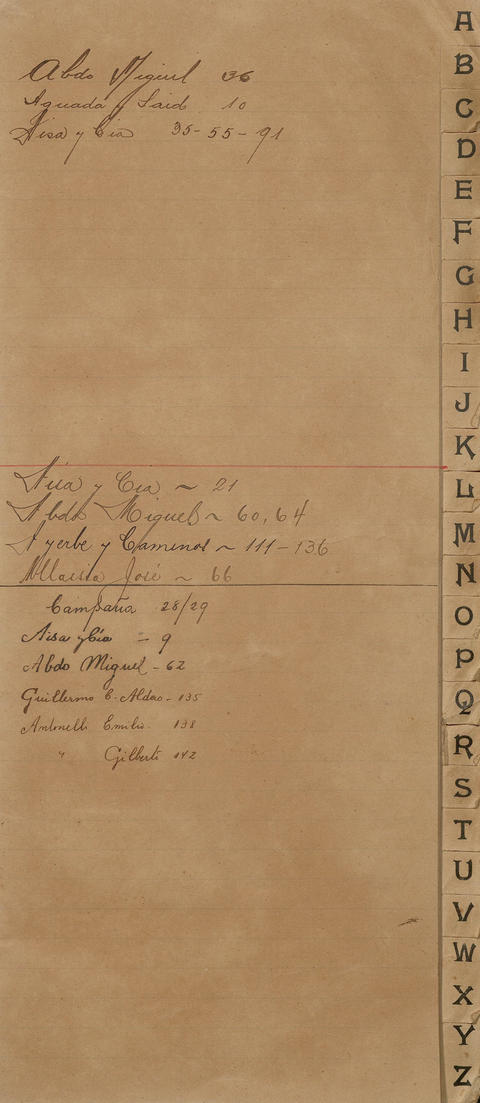 Abdo Miguel 36
Aguada y Said 10
Aisa y Cía 35-55-91
Aisa y Cia ~ 21
Abdo Miguel ~ 60, 64
Ayerbe y Caminos ~ 111-136
José ~ 66
Campaña 28/29
Aisa y Cía - 9
Abdo Miguel - 62
Guillermo C. Aldao - 135
Antonelli Emilio - 138
" Gilberto 142
A
B
C
D
E
F
G
H
I
J
K
L
M
N
O
P
Q
R
S
T
U
V
W
X
Y
Z